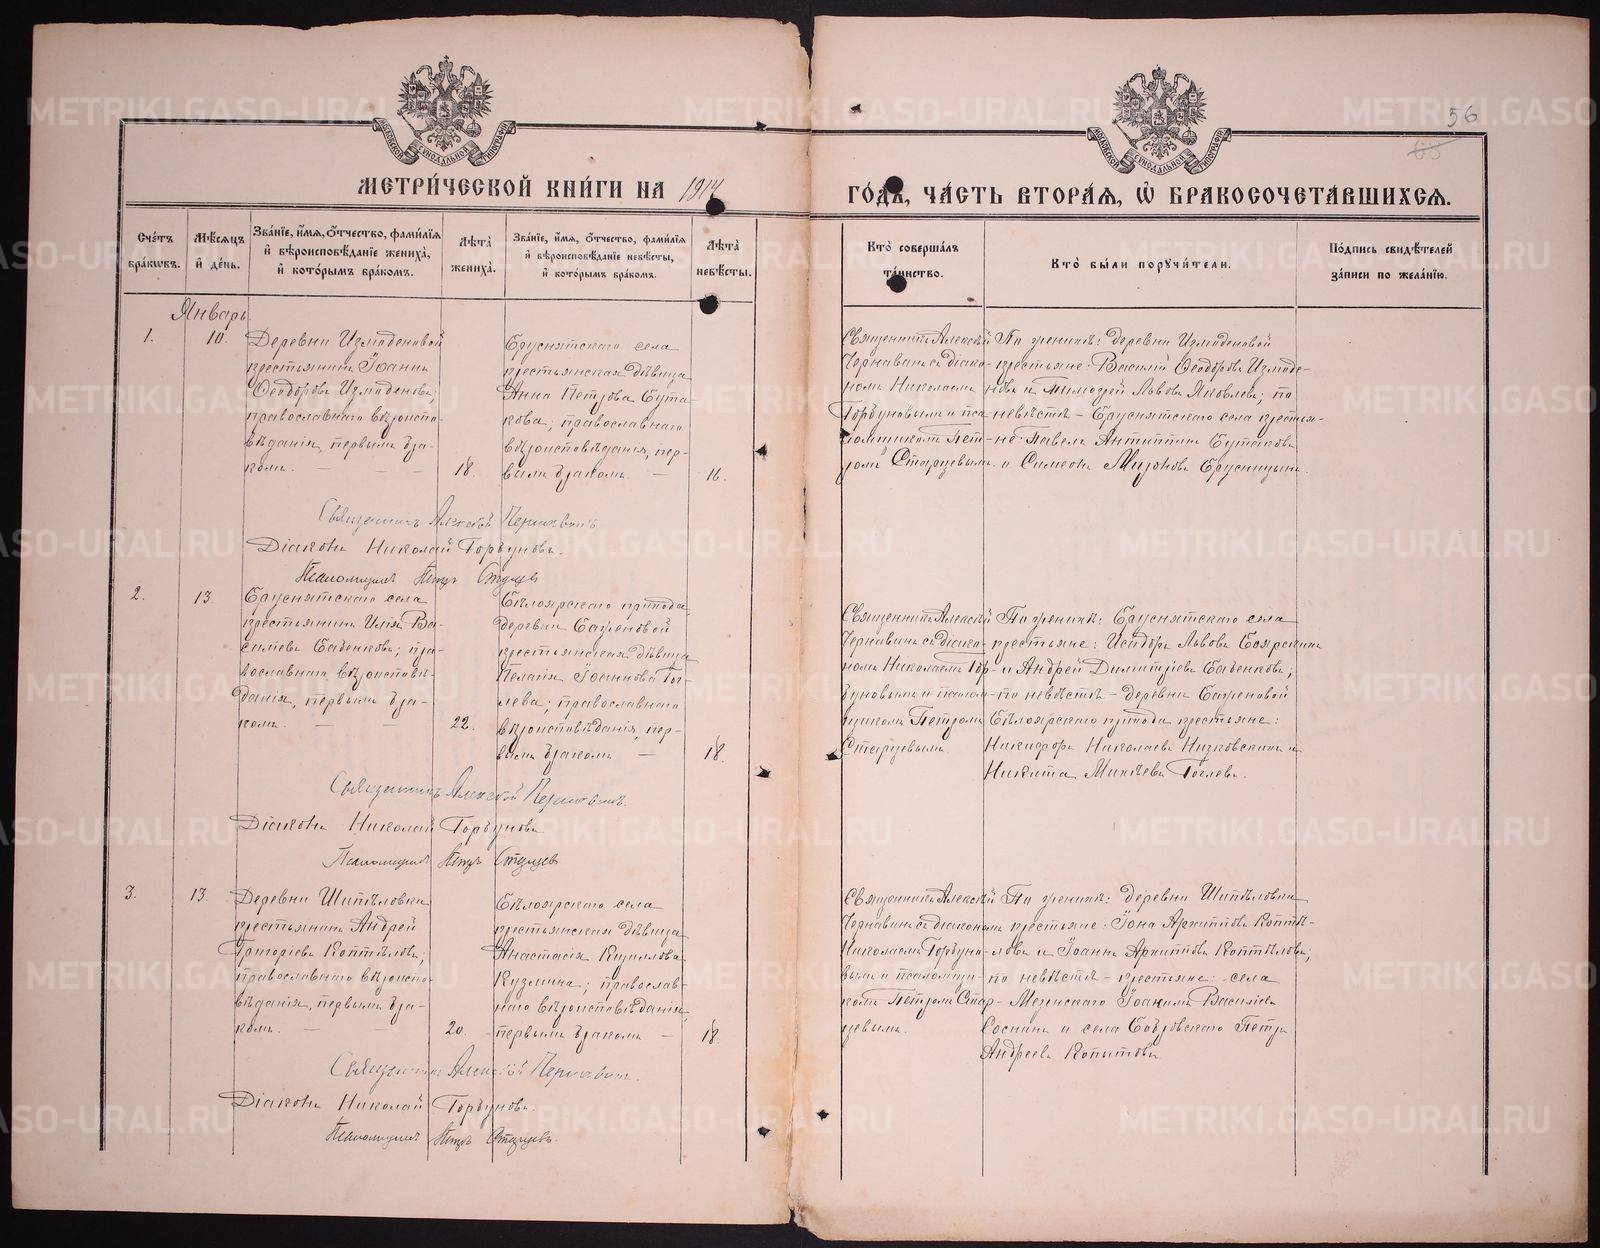 METRIKI.GASO-URAL.RU
56
МОСКОВСКОЙ СѴНОДАЛЬНОЙ ТИПОГРАФІИ
МОСКОВСКОЙ СѴНОДАЛЬНОЙ ТИПОГРАФІИ
МЕТРИ́ЧЕСКОЙ КНИ́ГИ НА 1914
ГО́ДЪ, ЧА́СТЬ ВТОРА́Я, Ѽ БРАКОСОЧЕТА́ВШИХСЯ.
Сче́тъ бра́кѡвъ.
Мѣ́сяцъ и҆ де́нь.
Зва́нїе, и҆́мя, ѻ҆́тчество, фами́лїя
и҆ вѣроисповѣ́данїе жениха̀,
и҆ кото́рымъ бра́комъ.
Лѣ́та жениха̀.
Зва́нїе, и҆́мя, ѻ҆́тчество, фами́лїя
и҆ вѣроисповѣ́данїе невѣ́сты,
и҆ кото́рымъ бра́комъ.
Лѣ́та невѣ́сты.
Кто̀ соверша́лъ та́инство.
Кто̀ бы́ли порꙋчи́тели.
По́дпись свидѣ́телей
за́писи по жела́нїю.
Январь
1.
10.
Деревни Измоденовой
крестьянинъ Іоаннъ
Ѳеодоровъ Измоденовъ;
православнаго вѣроиспо-
вѣданія, первымъ бра-
комъ.
18.
Бруснятскаго села
крестьянская дѣвица
Анна Петрова Бута-
кова; православнаго
вѣроисповѣданія, пер-
вымъ бракомъ.
16.
Священникъ Алексѣй
Чернавинъ съ діако-
номъ Николаемъ
Горбуновымъ и пса-
ломщикомъ Пет-
ромъ Старцевымъ.
По женихѣ: деревни Измоденовой
крестьяне: Василій Ѳеодоровъ Измоде-
новъ и Тимоѳей Львовъ Яковлевъ; по
невѣстѣ – Бруснятскаго села крестья-
не: Павелъ Антипинъ Бутаковъ
и Симеонъ Мироновъ Брусницынъ.
Священникъ Алексѣй Чернавинъ
Діаконъ Николай Горбуновъ.
Псаломщикъ Петръ Старцевъ
2.
13.
Бруснятскаго села
крестьянинъ Илія Ва-
силіевъ Бабенковъ; пра-
вославнаго вѣроисповѣ-
данія, первымъ бра-
комъ.
22.
Бѣлоярскаго прихода,
деревни Баженовой
крестьянская дѣвица
Пелагія Іоаннова Го-
лева; православнаго
вѣроисповѣданія, пер-
вымъ бракомъ
18.
Священникъ Алексѣй
Чернавинъ съ діако-
номъ Николаемъ Гор-
буновымъ и псалом-
щикомъ Петромъ
Старцевымъ
По женихѣ: Бруснятскаго села
крестьяне: Исидоръ Львовъ Боярскихъ
и Андрей Димитріевъ Бабенковъ;
по невѣстѣ – деревни Баженовой
Бѣлоярскаго прихода крестьяне:
Никифоръ Николаевъ Низковскихъ и
Никита Михѣевъ
Священникъ Алексѣй Чернавинъ.
Діаконъ Николай Горбуновъ
Псаломщикъ Петръ Старцевъ
3.
13.
Деревни Шипѣловки
крестьянинъ Андрей
Григоріевъ Коптѣловъ;
православнаго вѣроиспо-
вѣданія, первымъ бра-
комъ.
20.
Бѣлоярскаго села
крестьянская дѣвица
Анастасія Кириллова
Кузмина; православ-
наго вѣроисповѣданія,
первымъ бракомъ
18.
Священникъ Алексѣй
Чернавинъ съ діакономъ
Николаемъ Горбуно-
вымъ и псаломщи-
комъ Петромъ Стар-
цевымъ.
По женихѣ: деревни Шипѣловки
крестьяне: Іона Архиповъ Коптѣ-
ловъ и Іоаннъ Архиповъ Коптѣловъ;
по невѣстѣ – крестьяне: села
Мезенскаго Іоакимъ Василіевъ
Соснинъ и села Бобровскаго Петръ
Андреевъ Копытовъ
Священникъ Алексѣй Чернавинъ.
Діаконъ Николай Горбуновъ.
Псаломщикъ Петръ Старцевъ.